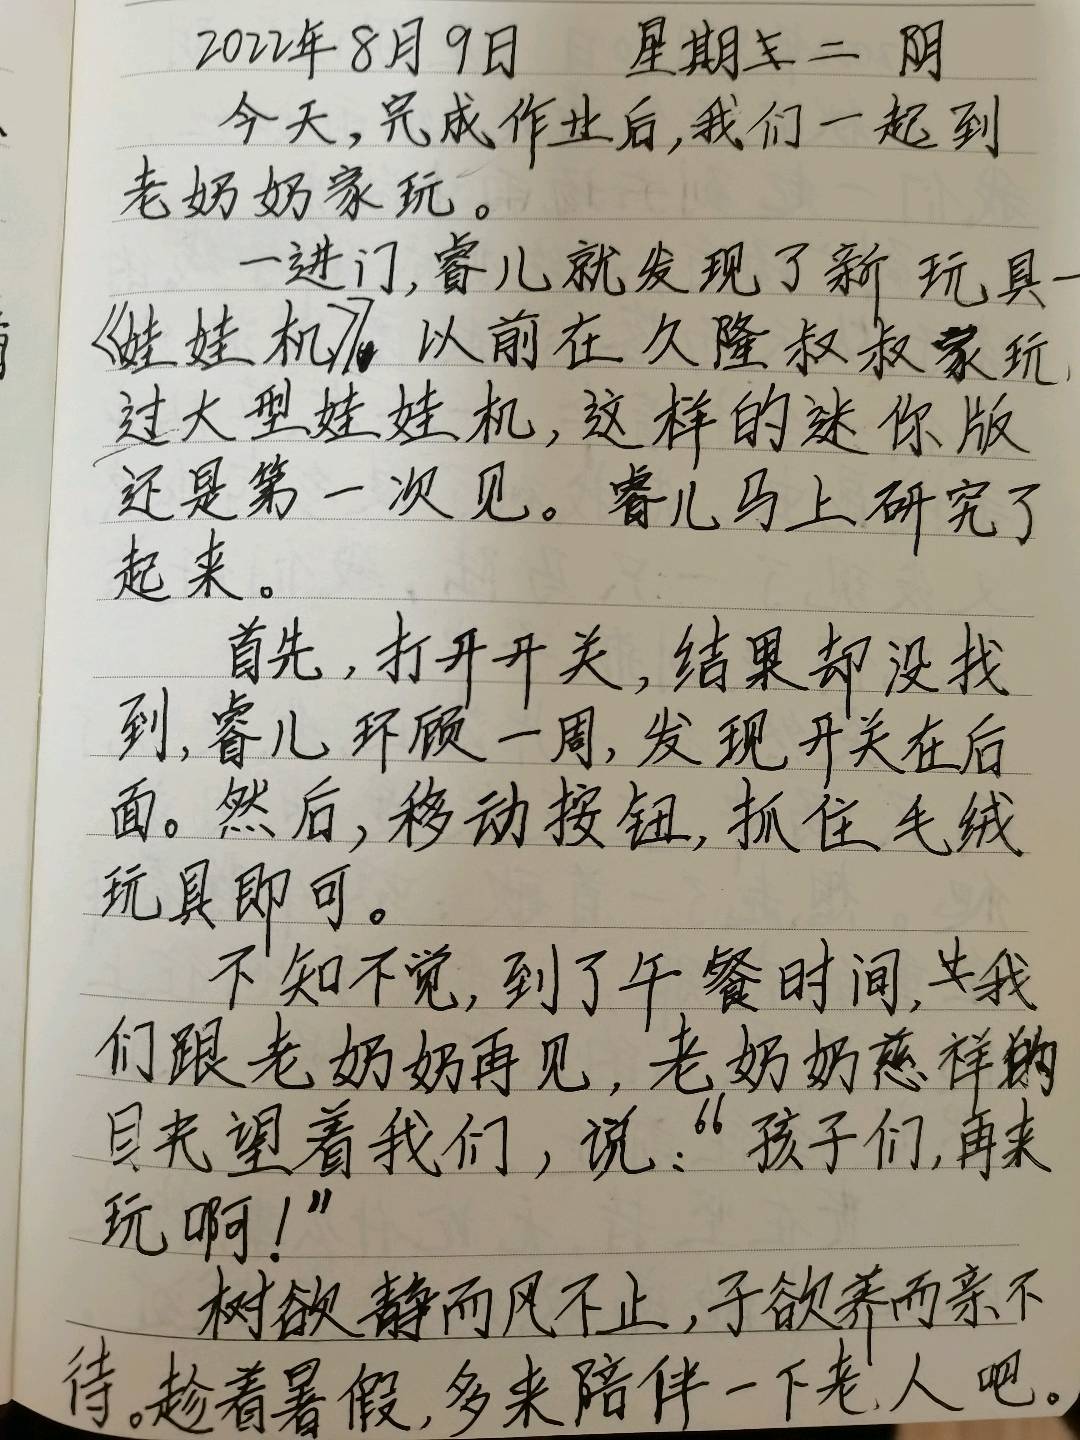 2022年8月9日 星期二 阴
今天，完成作业后，我们一起到
老奶奶家玩。
一进门，睿儿就发现了新玩具一
《娃娃机》。以前在久隆叔叔家玩
过大型娃娃机，这样的迷你版
还是第一次见。睿儿马上研究了
起来。
首先，打开开关，结果却没找
到，睿儿环顾一周，发现开关在后
面。然后，移动按钮，抓住毛绒
玩具即可。
不知不觉，到了午餐时间，我
们跟老奶奶再见，老奶奶慈祥的
望着我们，说：“孩子们，再来
玩啊！”
树欲静而风不止，子欲养而亲不
待。趁着暑假，多来陪伴一下老人吧。